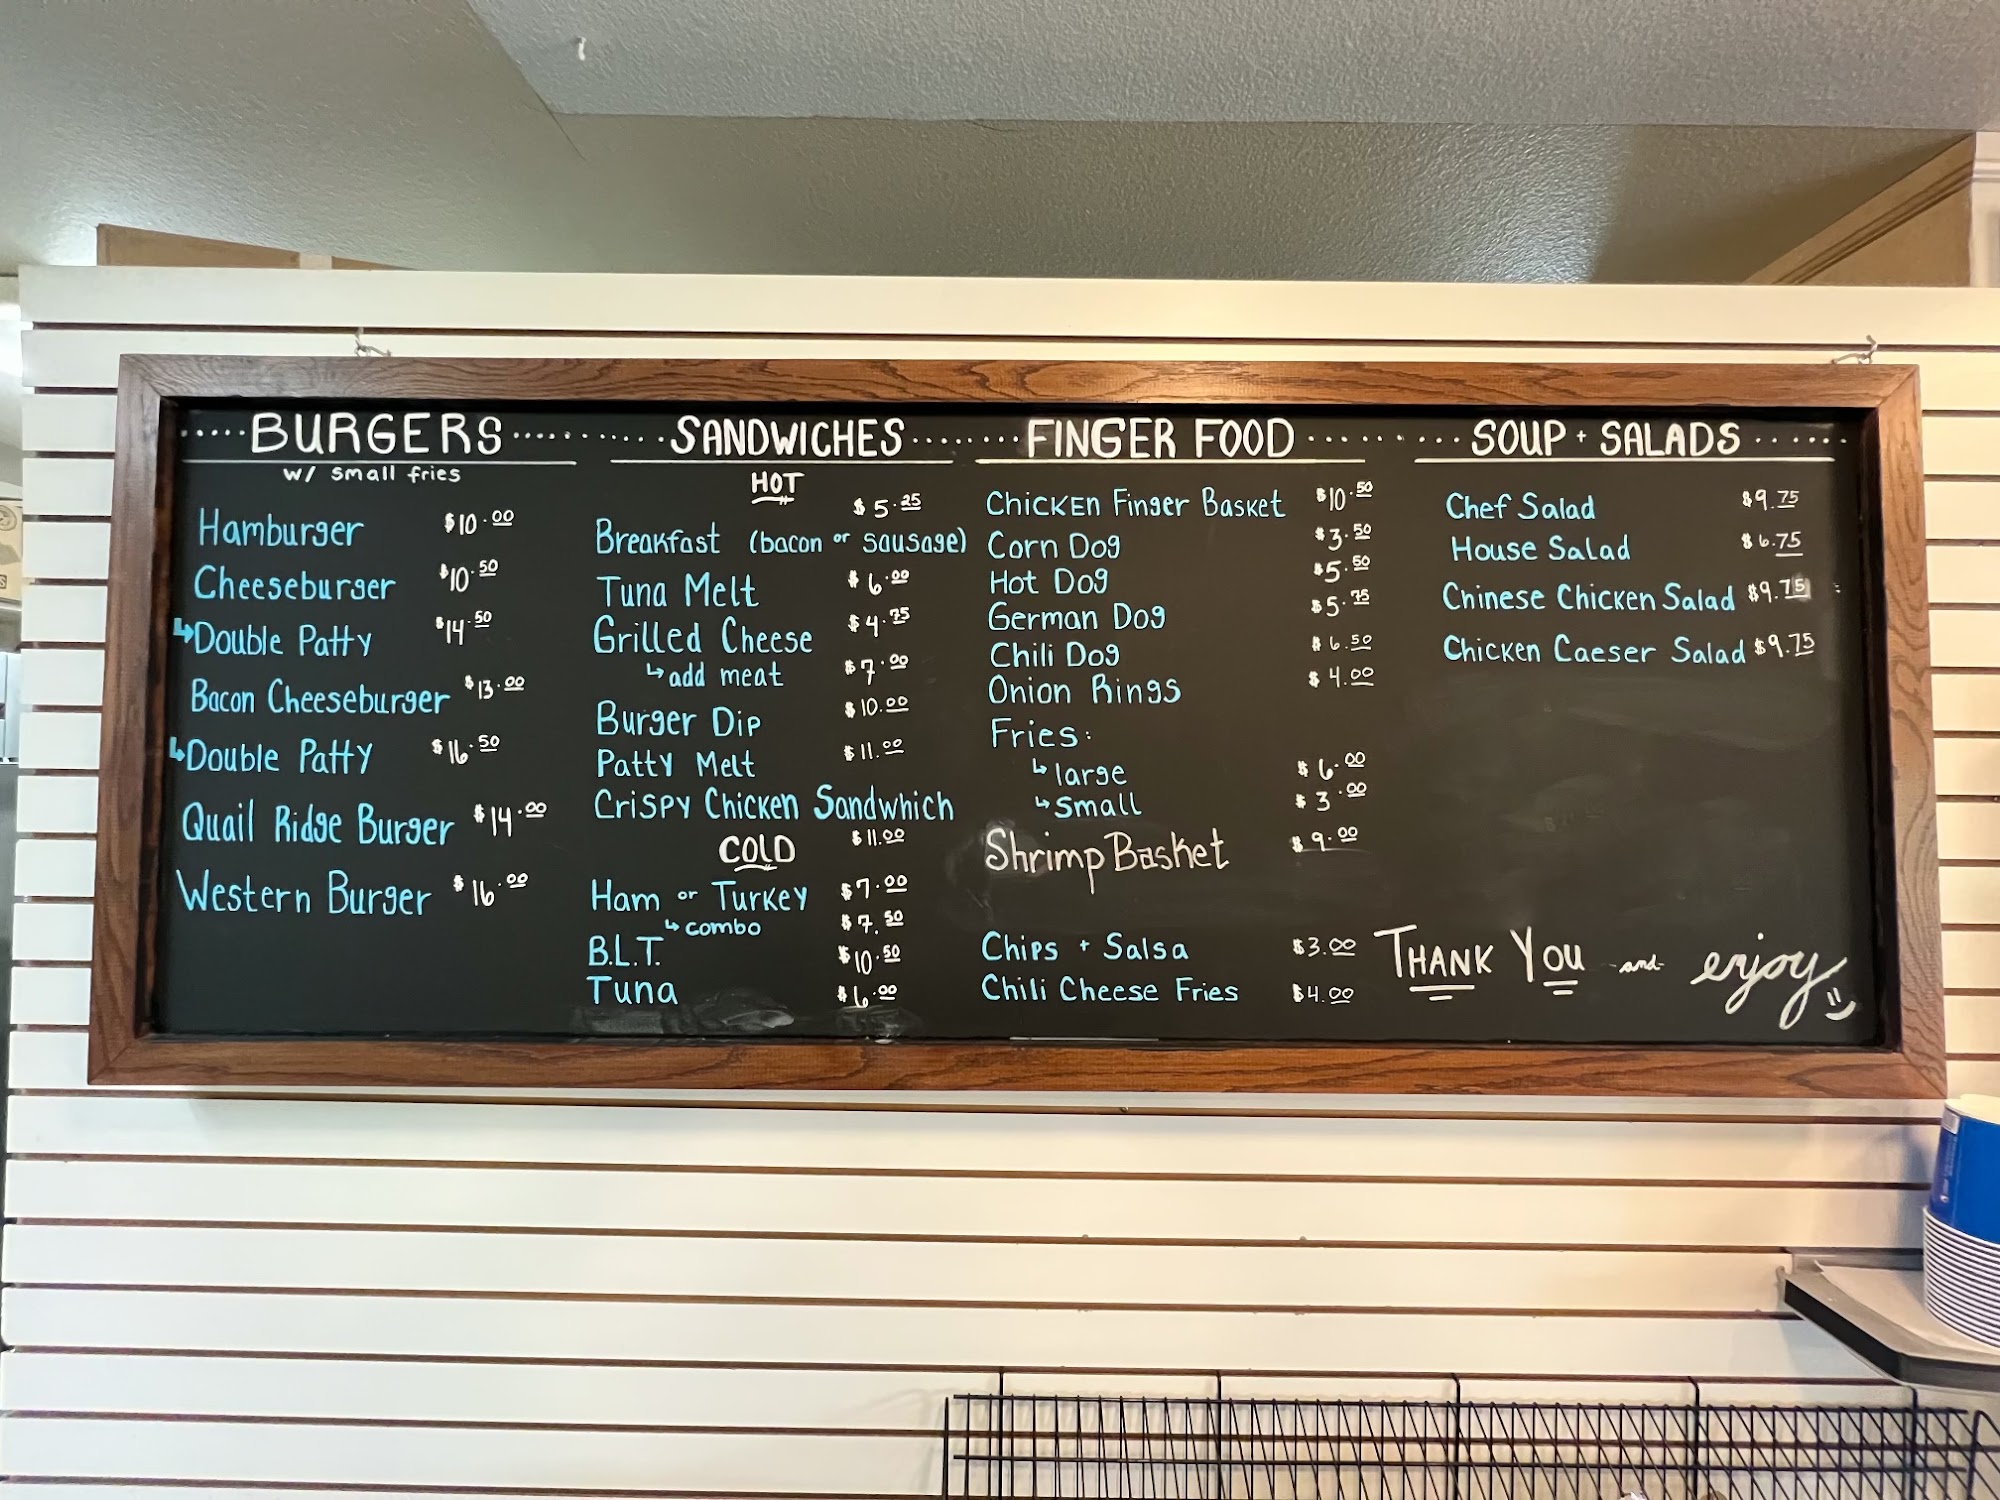 BURGERS
w/ small fries
Hamburger $10.00
Cheeseburger $10.50
↳Double Patty $14.50
Bacon Cheeseburger $13.00
↳Double Patty $16.50
Quail Ridge Burger $14.00
Western Burger $16.00
SANDWICHES
HOT
$5.25
Breakfast (bacon or sausage)
Tuna Melt $6.00
Grilled Cheese $4.75
↳add meat $7.00
Burger Dip $10.00
Patty Melt $11.00
Crispy Chicken Sandwhich
$11.00
COLD
Ham or Turkey $7.00
↳combo $7.50
B.L.T. $10.50
Tuna $6.00
FINGER FOOD
Chicken Finger Basket $10.50
Corn Dog $3.50
Hot Dog $5.50
German Dog $5.75
Chili Dog $6.50
Onion Rings $4.00
Fries:
↳large $6.00
↳small $3.00
Shrimp Basket $9.00
Chips + Salsa $3.00
Chili Cheese Fries $4.00
SOUP + SALADS
Chef Salad $9.75
House Salad $6.75
Chinese Chicken Salad $9.75
Chicken Caeser Salad $9.75
THANK YOU -and- enjoy